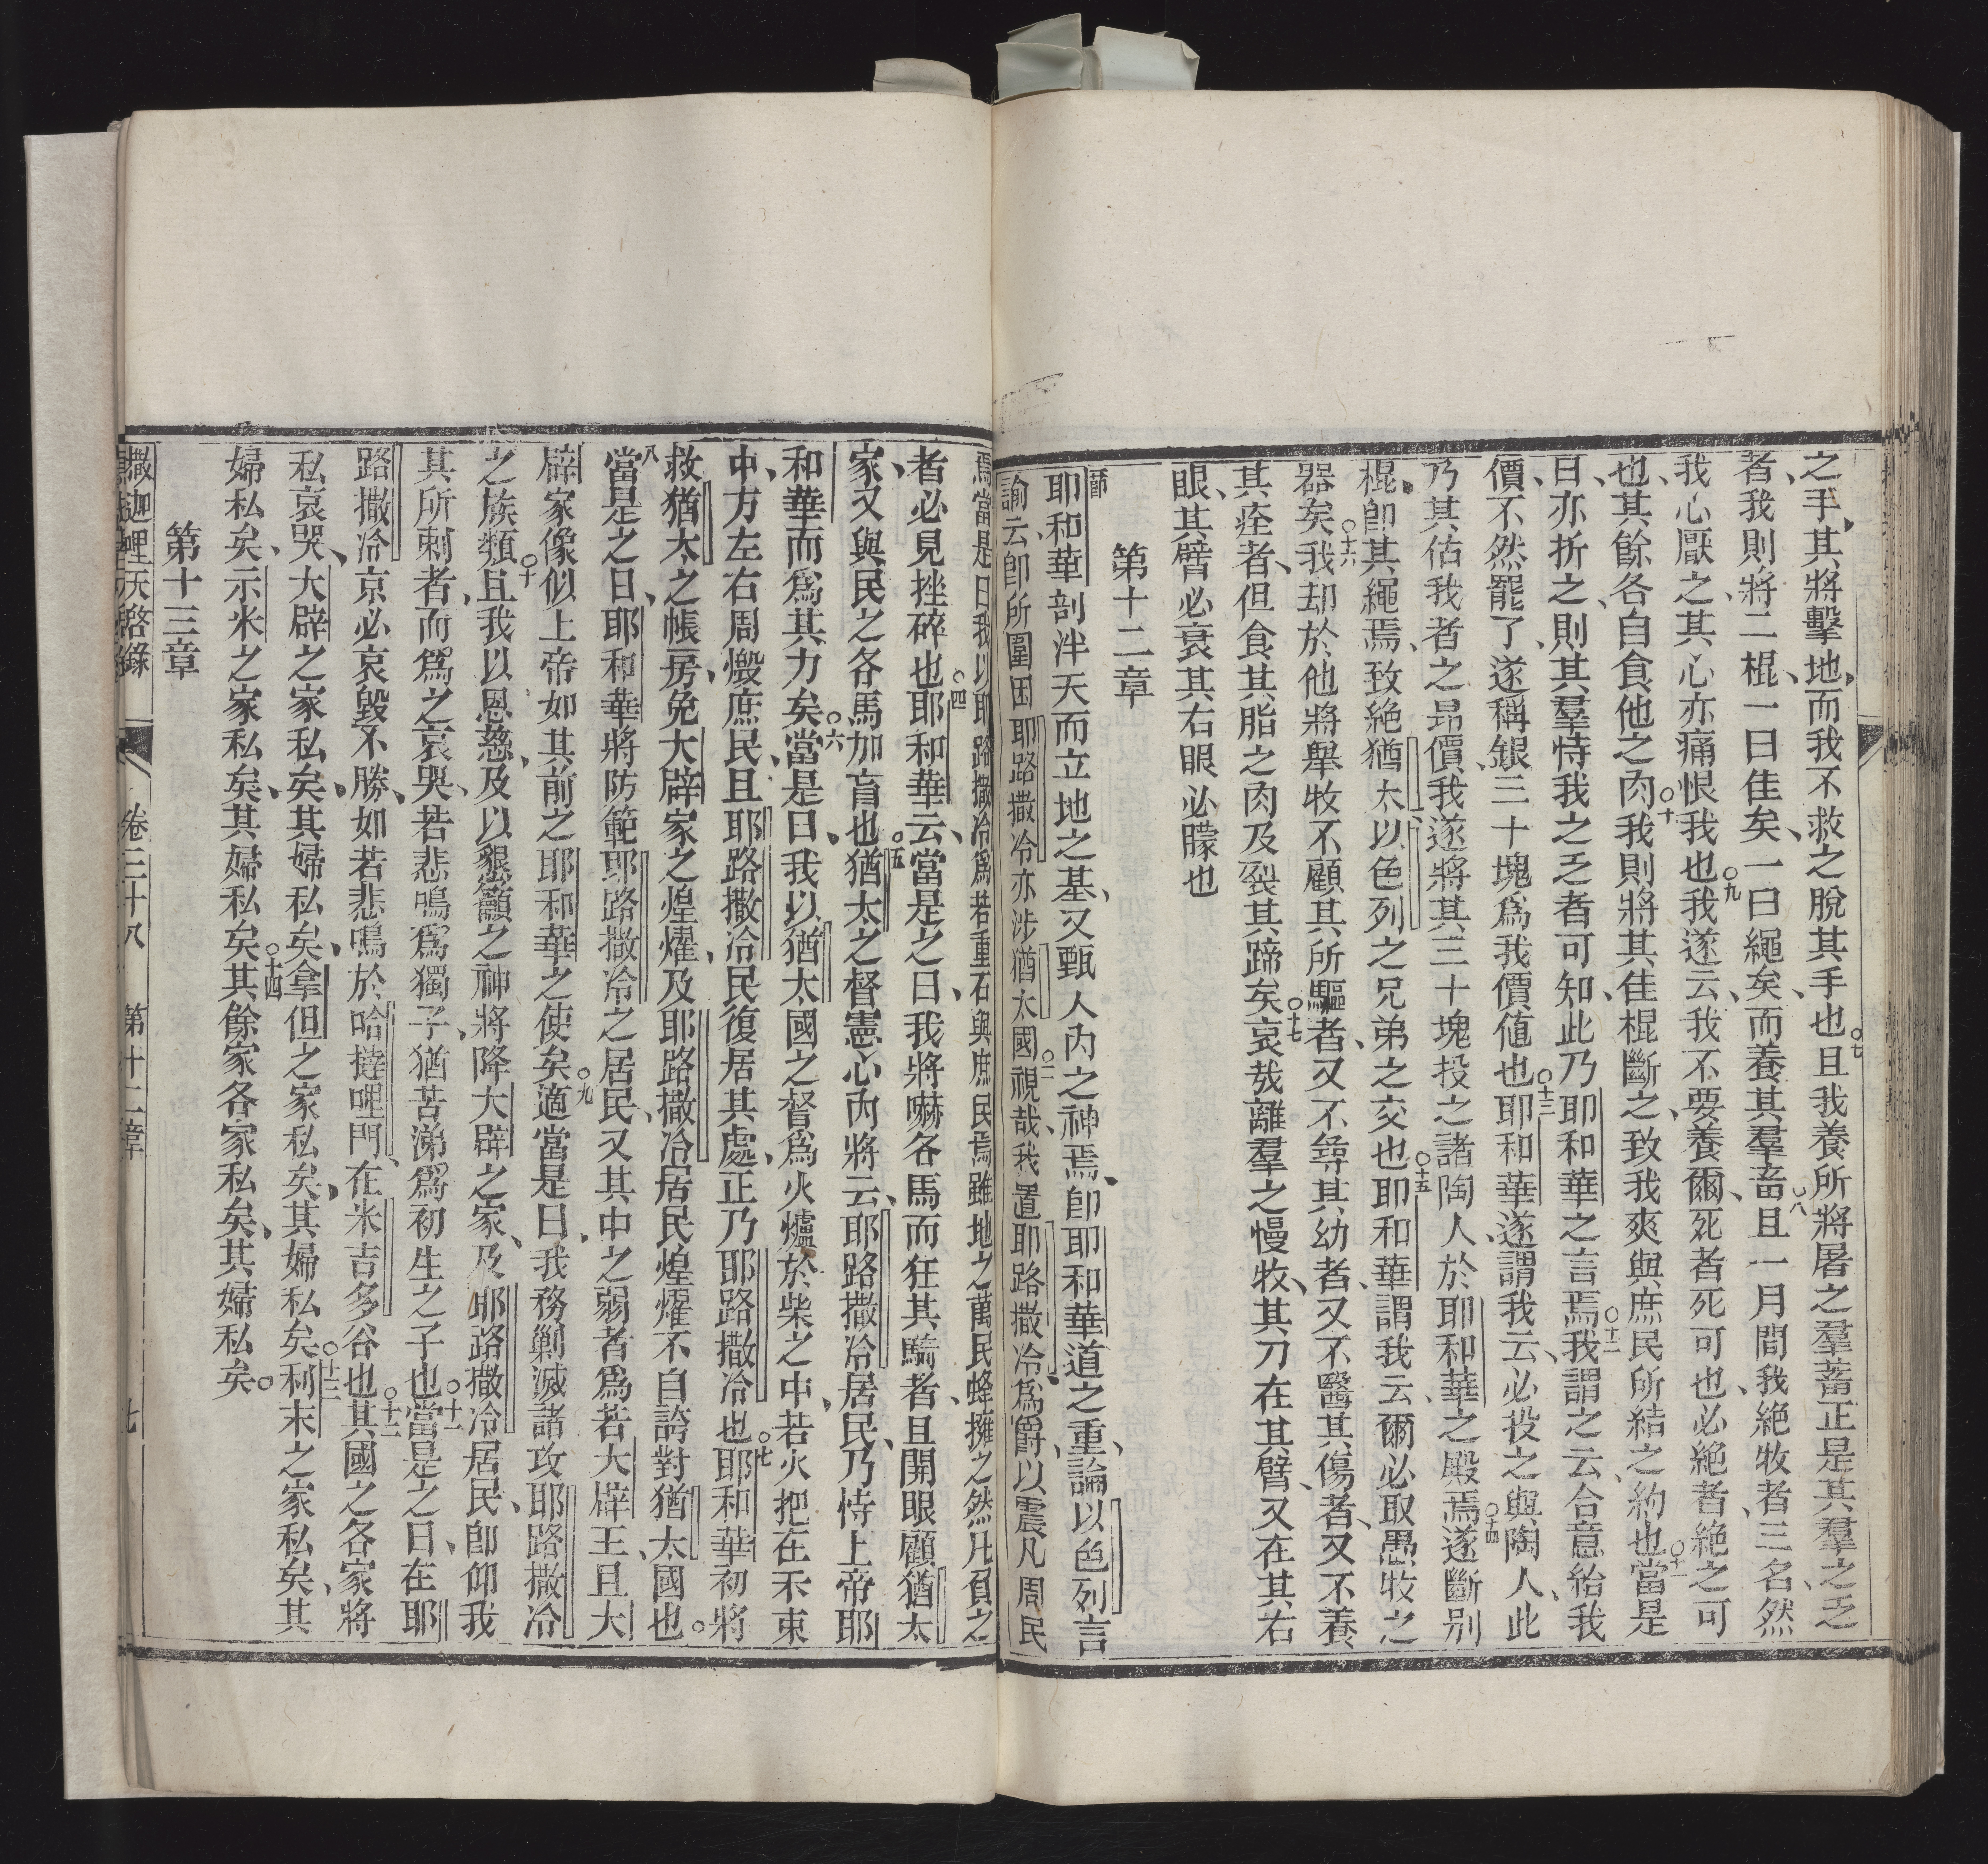 之手、其將擊地、而我不救之脫其手也○七且我養所將屠之羣蓄正是其羣之乏
者、我則將二棍、一曰佳矣、一曰繩矣、而養其羣畜○八且一月間我絕牧者三名、然
我心厭之、其心亦痛恨我也○九我遂云、我不要養爾、死者死可也、必絕者、絕之可
也、其餘各自食他之肉○十我則將其佳棍斷之、致我爽與庶民所結之約也○十一當是
日亦折之、則其羣恃我之乏者可知、此乃耶和華之言焉○十二我謂之云、合意給我
價、不然罷了、遂稱銀三十塊爲我價値也○十三耶和華遂謂我云、必投之與陶人、此
乃其估我者之昻價、我遂將其三十塊投之諸陶人於耶和華之殿焉○十四遂斷別
棍、卽其繩焉、致絕猶太以色列之兄弟之交也○十五耶和華謂我云、爾必取愚牧之
器矣○十六我却於他將舉牧不顧其所驅者、又不尋其幼者、又不醫其傷者、又不養
其痊者、但食其脂之肉及裂其蹄矣○十七哀哉離羣之慢牧、其刀在其臂、又在其右
眼、其臂必衰其右眼必矇也
第十二章
一節耶和華剖泮天而立地之基、又甄人內之神焉、卽耶和華道之重、論以色列言
諭云卽所圍困耶路撒冷亦涉猶太國○二視哉、我置耶路撒冷爲爵、以震凡周民
焉當是日我以耶路撒冷爲若重石與庶民焉雖地之萬民蜂擁之然凡負之
者必見挫碎也○四耶和華云、當是之日、我將嚇各馬而狂其騎者、且開眼顧猶太
家、又與民之各馬加盲也○五猶太之督憲心內將云、耶路撒冷居民、乃恃上帝耶
和華而爲其力矣○六當是日、我以猶太國之督爲火爐於柴之中、若火把在禾束
中、方左右周燬庶民、且耶路撒冷民復居其處、正乃耶路撒冷也○七耶和華初將
救猶太之帳房、免大辟家之煌燿、及耶路撒冷居民煌燿不自誇對猶太國也。
八當是之日、耶和華將防範耶路撒冷之居民、又其中之弱者爲若大辟王、且大
辟家像似上帝如其前之耶和華之使矣○九適當是日、我務勦滅諸攻耶路撒冷
之族類○十且我以恩慈、及以懇籲之神將降大辟之家、及耶路撒冷居民、卽仰我
其所刺者、而爲之哀哭、若悲鳴爲獨子、猶苦涕爲初生之子也○十一當是之日、在耶
路撒冷京必哀毀不勝、如若悲鳴於哈撻哩門、在米吉多谷也○十二其國之各家將
私哀哭、大辟之家私矣、其婦私矣、拿但之家私矣、其婦私矣○十三利末之家私矣、其
婦私矣、示米之家私矣、其婦私矣○十四其餘家各家私矣、其婦私矣。
第十三章
撒迦哩亞天啓錄 卷三十八 第十二章 七